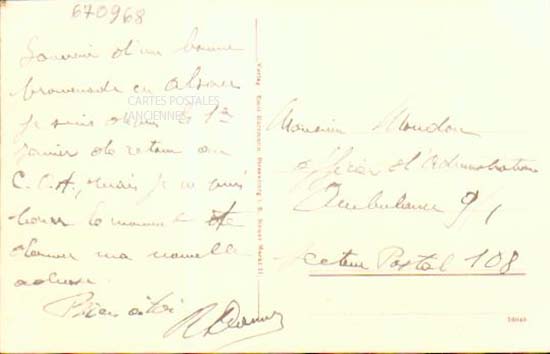 670968
Souvenir d'une bonne
promenade en alsace
je suis depuis le 1er
janvier de retour au
C.C.A., mais je n'ai
trouver le moment de
donner ma nouvelle
adresse
Bien à toi
CARTES POSTALES
ANCIENNES
Verlag Emil Hartmann, Strassburg i. E.
Monsieur Moudon
officier d'administration
Ambulance 9/1
Secteur Postal 108